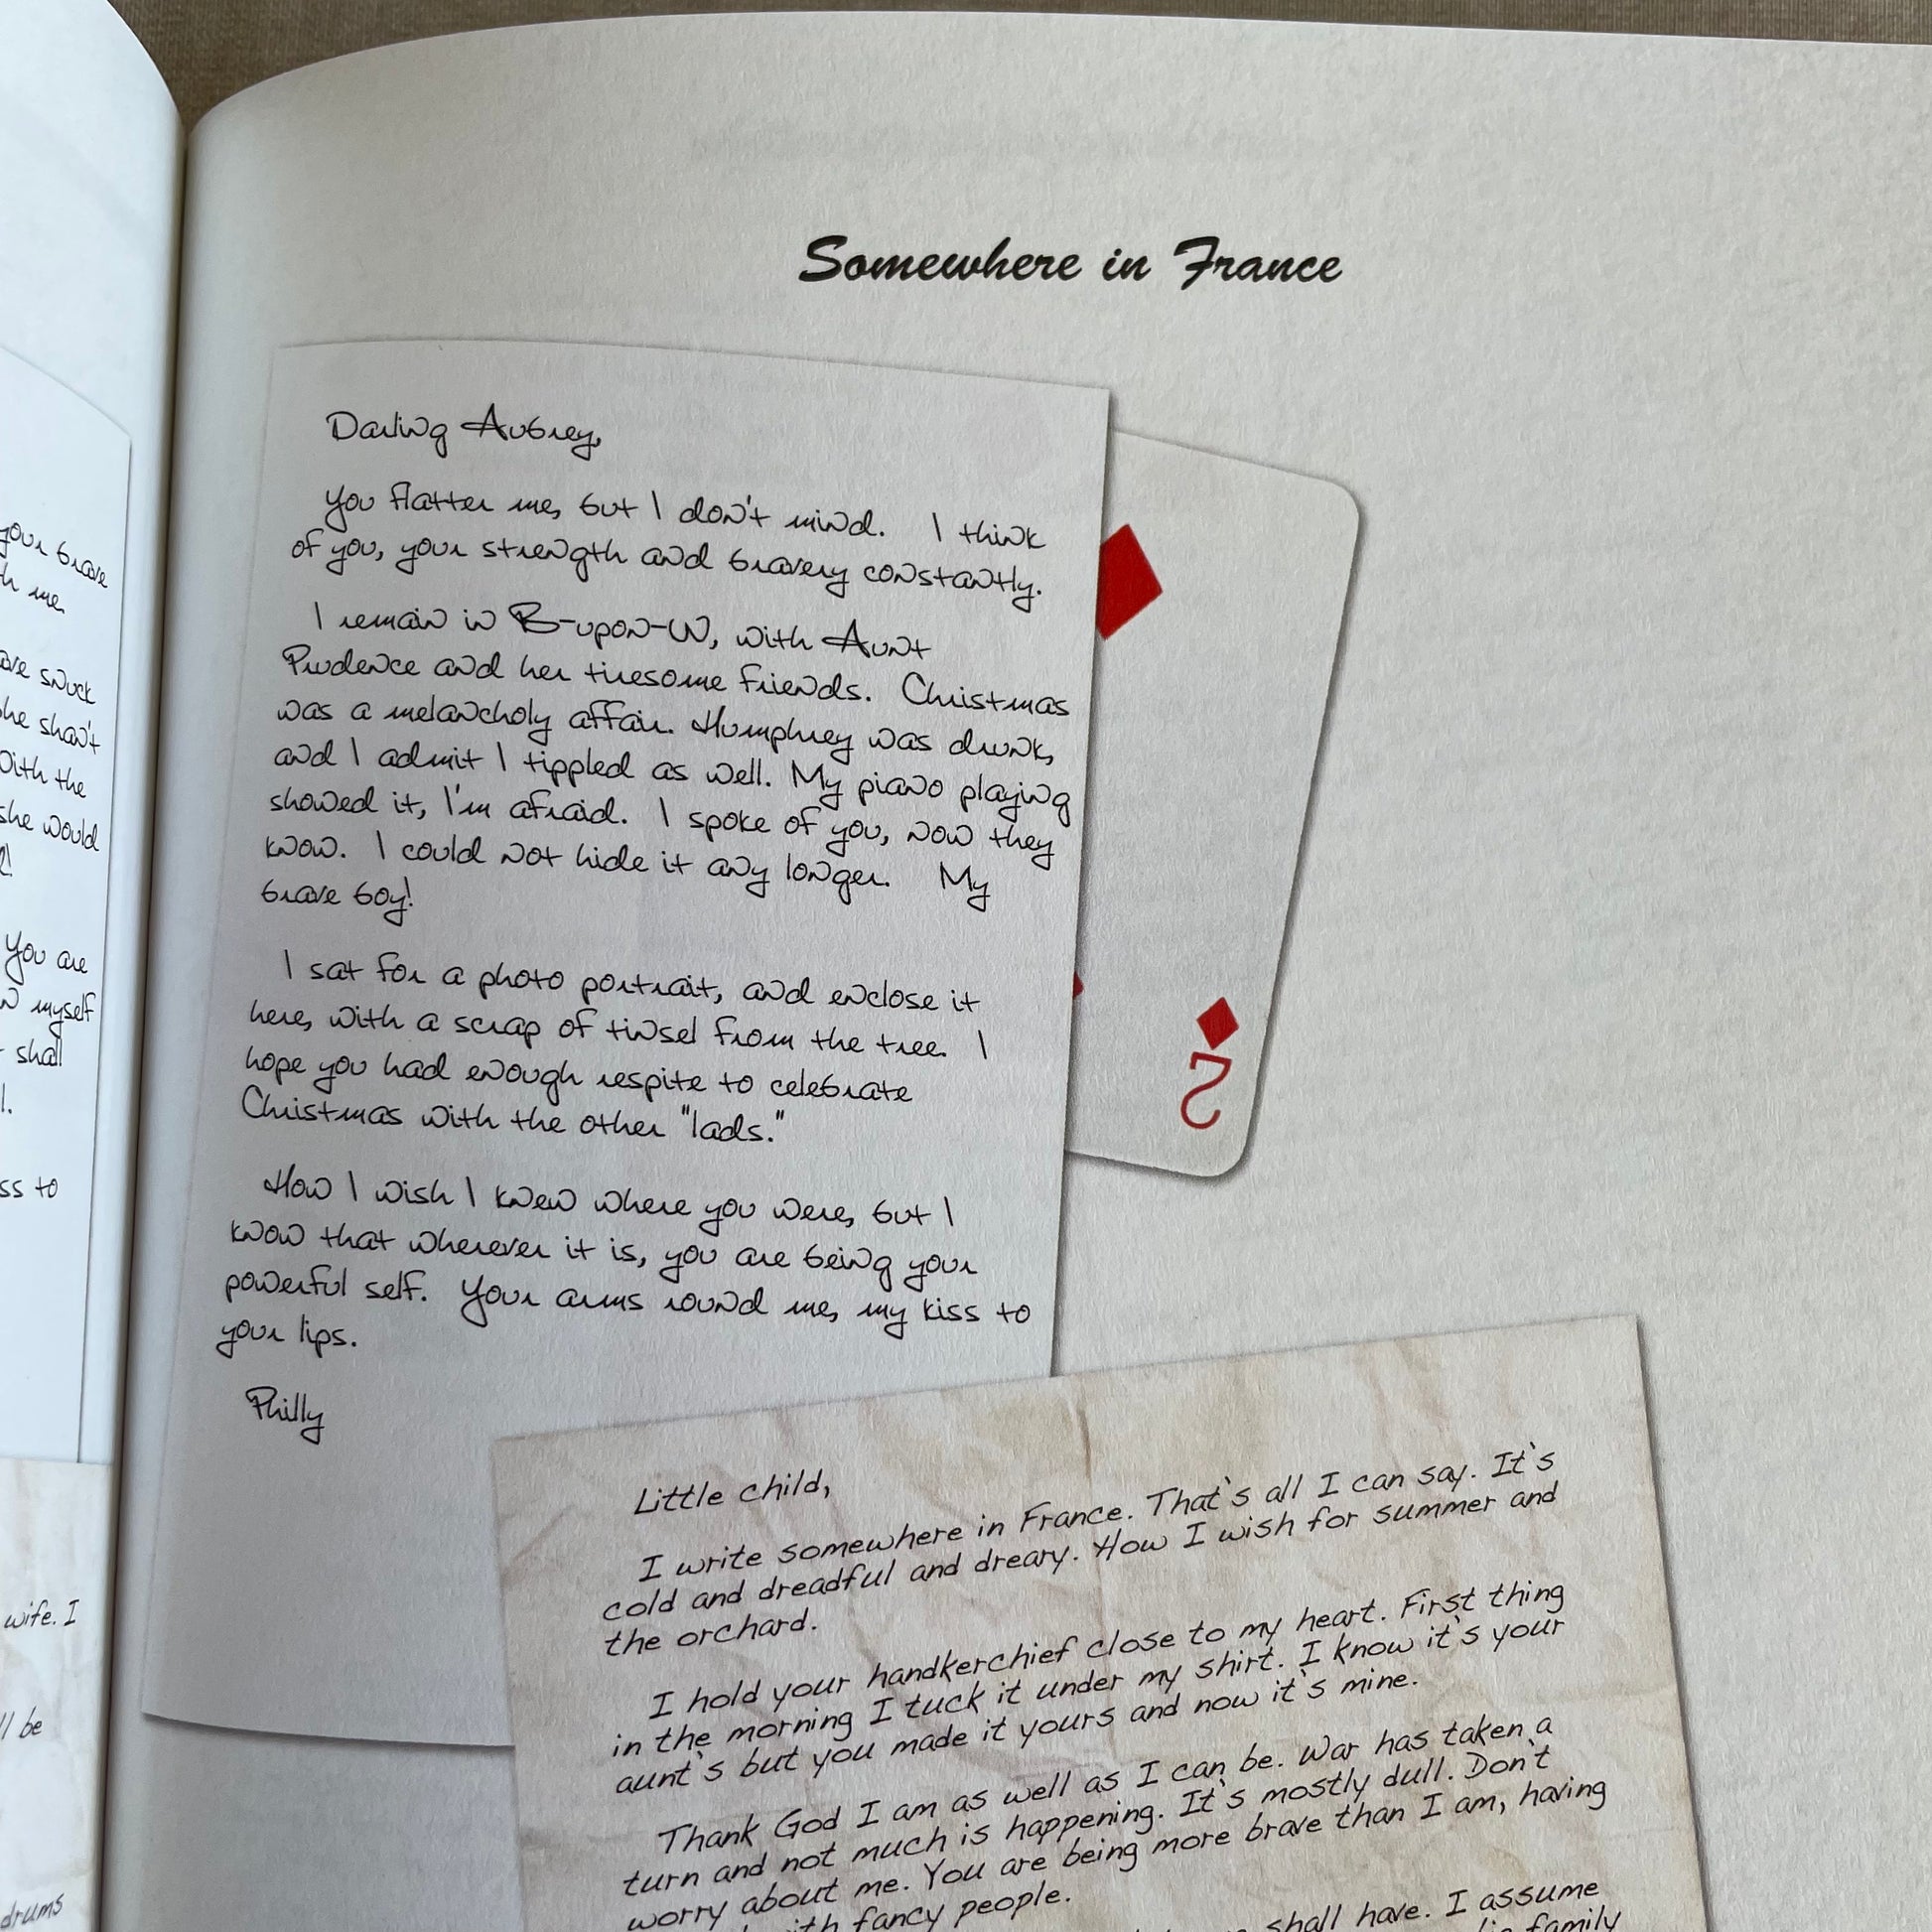 your brave
me.
snuck
she shan't
with the
she would
You are
myself
shall
to
wife. I
be
drums
Somewhere in France
Darling Aubrey,
You flatter me, but I don't mind. I think
of you, your strength and bravery constantly.
I remain in B-upon-W, with Aunt
Prudence and her tiresome friends. Christmas
was a melancholy affair. Humphrey was drunk,
and I admit I tippled as well. My piano playing
showed it, I'm afraid. I spoke of you, now they
know. I could not hide it any longer. My
brave boy!
I sat for a photo portrait, and enclose it
here, with a scrap of tinsel from the tree. I
hope you had enough respite to celebrate
Christmas with the other "lads."
How I wish I knew where you were, but I
know that wherever it is, you are being your
powerful self. Your arms round me, my kiss to
your lips.
Philly
2
Little child,
I write somewhere in France. That's all I can say. It's
cold and dreadful and dreary. How I wish for summer and
the orchard.
I hold your handkerchief close to my heart. First thing
in the morning I tuck it under my shirt. I know it's your
aunt's but you made it yours and now it's mine.
Thank God I am as well as I can be. War has taken a
turn and not much is happening. It's mostly dull. Don't
worry about me. You are being more brave than I am, having
fancy people.
shall have. I assume
family